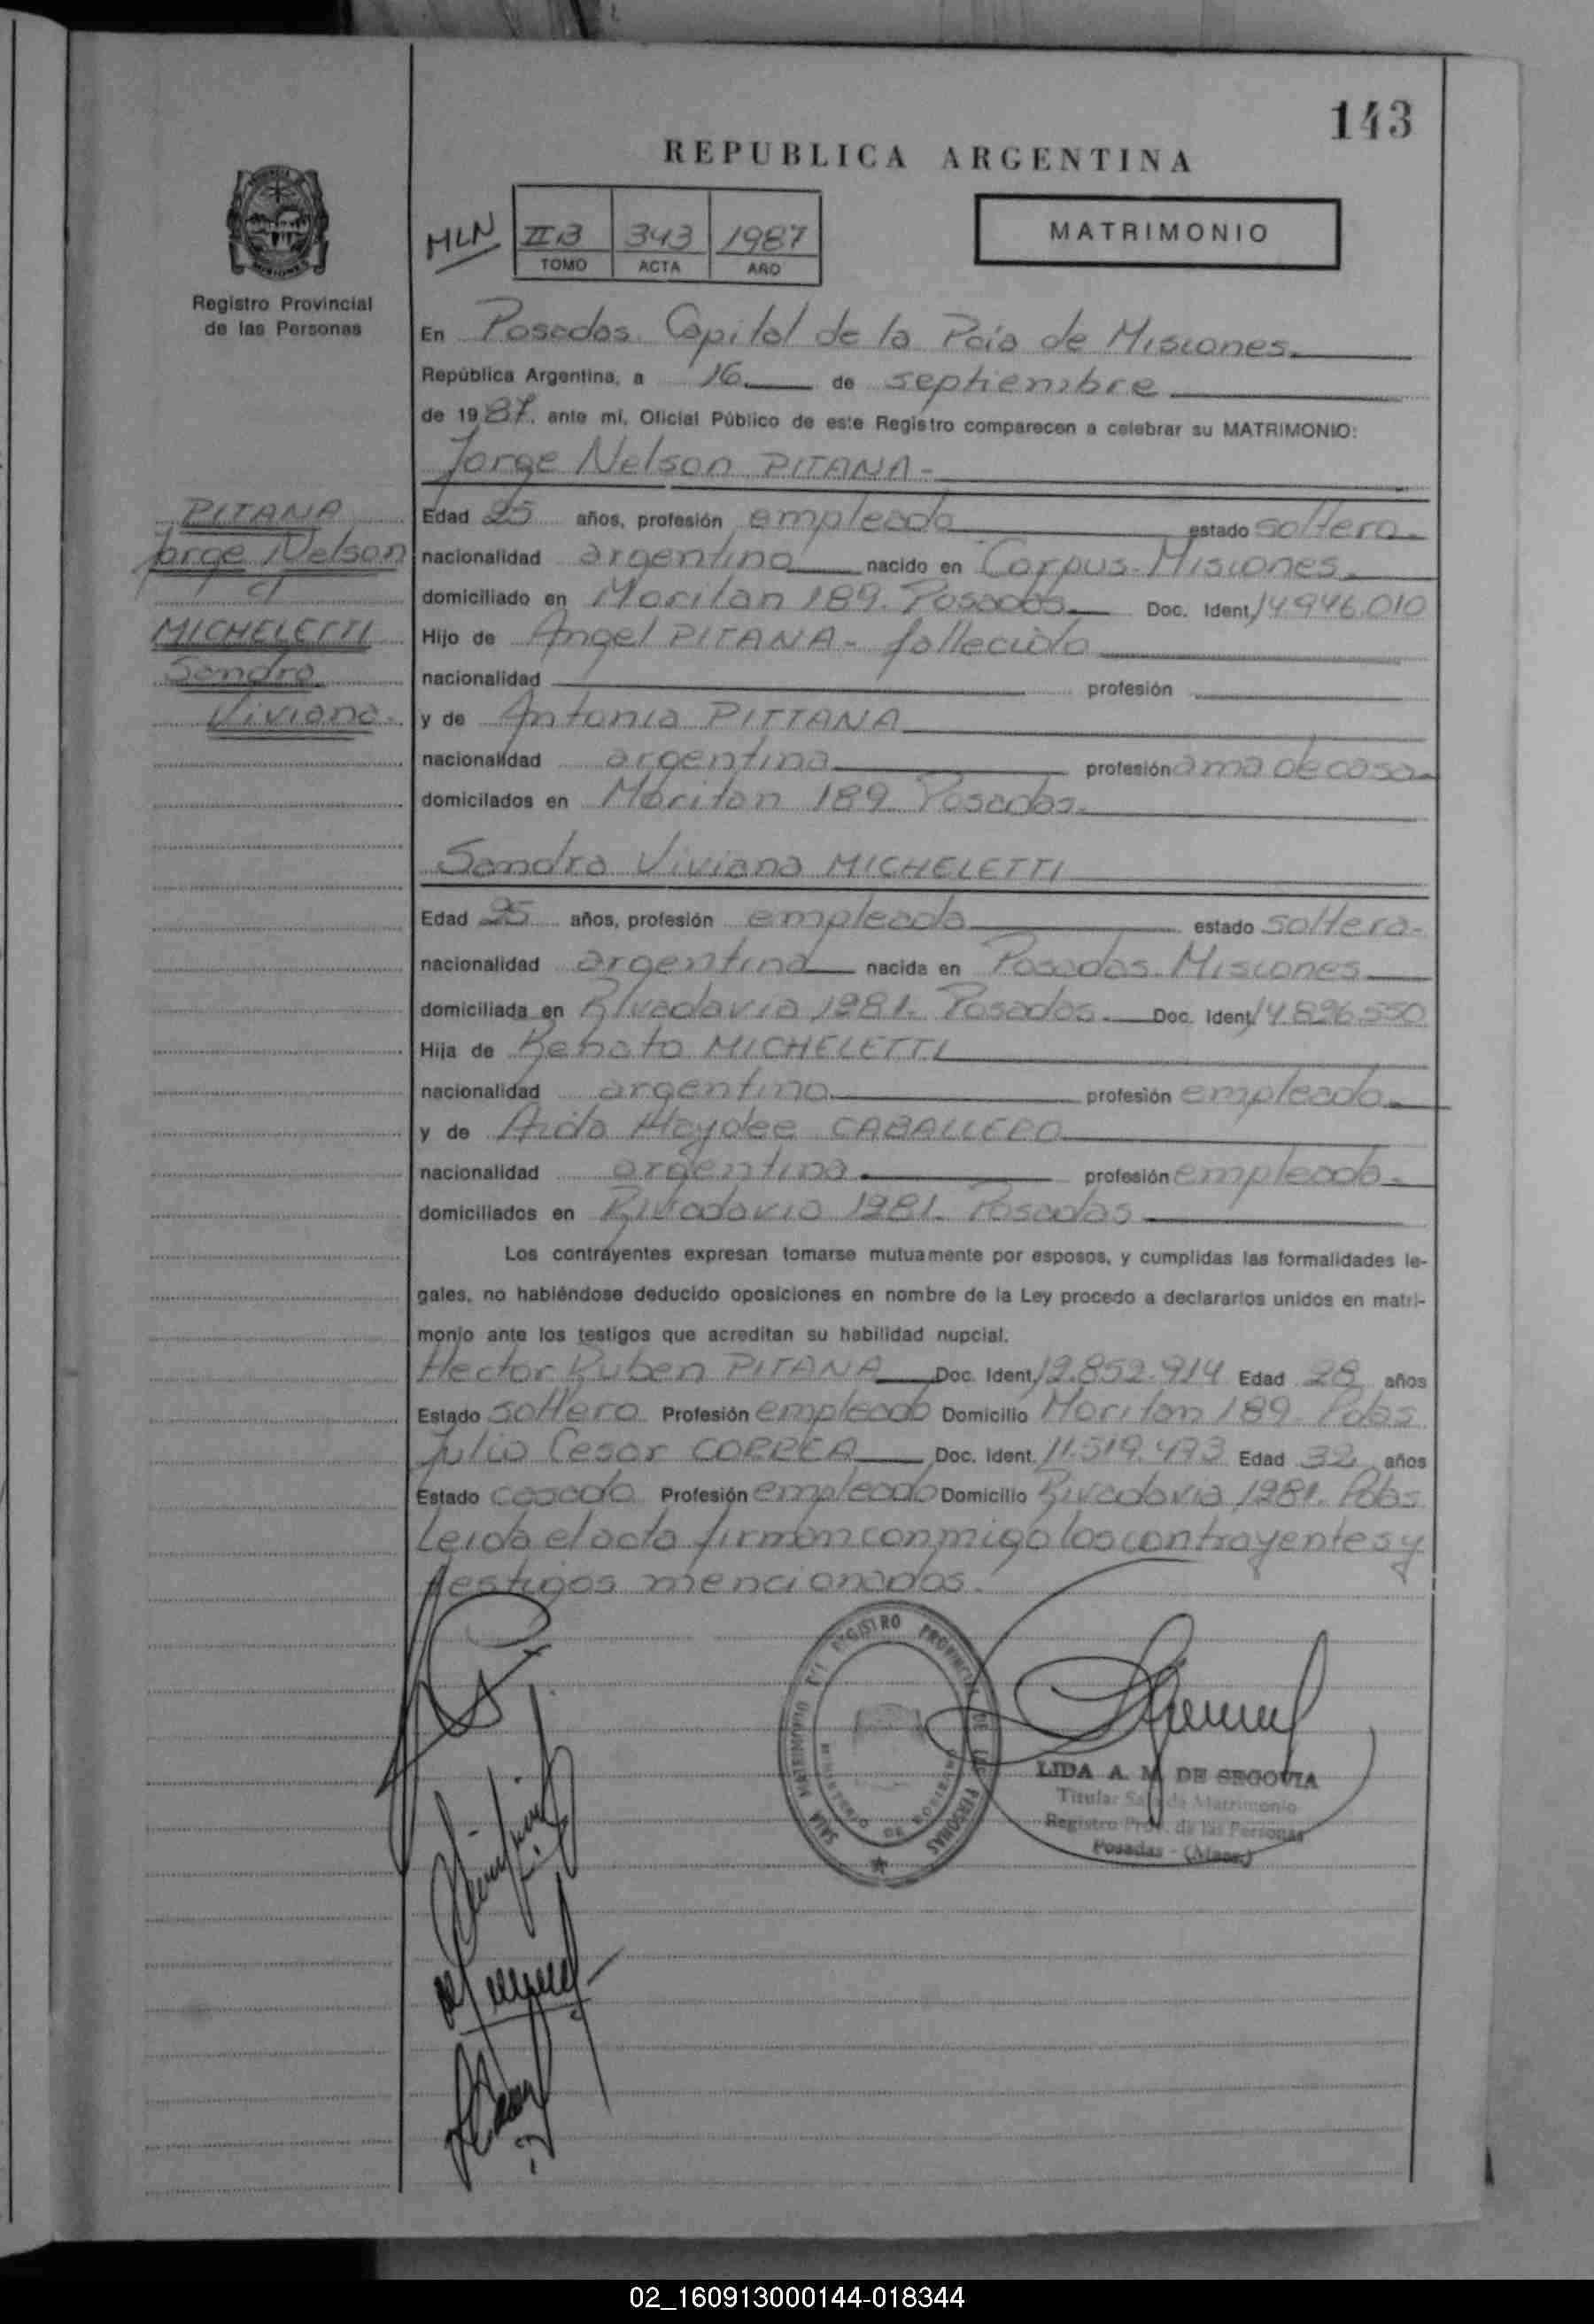 143
REPUBLICA ARGENTINA
MLN
II B 343 1987
TOMO ACTA AÑO
MATRIMONIO
Registro Provincial
de las Personas
En Posadas. Capital de la Pcia de Misiones.
República Argentina, a 16 de septiembre
de 1987. ante mí, Oficial Público de este Registro comparecen a celebrar su MATRIMONIO:
Jorge Nelson PITANA-
PITANA
Jorge Nelson
c/
MICHELETTI
Sandra
Viviana.
Edad 25 años, profesión empleado estado soltero.
nacionalidad argentina nacido en Corpus-Misiones.
domiciliado en Moritan 189. Posadas. Doc. Ident. 14.946.010
Hijo de Angel PITANA- fallecido
nacionalidad profesión
y de Antonia PITTANA
nacionalidad argentina profesión ama de casa
domicilados en Moritan 189 Posadas.
Sandra Viviana MICHELETTI
Edad 25 años, profesión empleada estado soltera-
nacionalidad argentina nacida en Posadas-Misiones
domiciliada en Rivadavia 1981. Posadas. Doc. Ident. 14.896.550
Hija de Renato MICHELETTI
nacionalidad argentino profesión empleado
y de Aida Haydee CABALLERO
nacionalidad argentina. profesión empleada.
domiciliados en Rivadavia 1981. Posadas
Los contrayentes expresan tomarse mutuamente por esposos, y cumplidas las formalidades le-
gales, no habiéndose deducido oposiciones en nombre de la Ley procedo a declararlos unidos en matri-
monio ante los testigos que acreditan su habilidad nupcial.
Hector Ruben PITANA Doc. Ident. 12.852.914 Edad 28 años
Estado soltero Profesión empleado Domicilio Moritan 189 Pdas
Julio Cesar CORREA Doc. Ident. 11.519.493 Edad 32 años
Estado casado Profesión empleado Domicilio Rivadavia 1981. Pdas
Leida el acta firman conmigo los contrayentes y
testigos mencionados.
SALA MATRIMONIO DEL REGISTRO PROVINCIAL DE LAS PERSONAS
MINISTERIO DE GOBIERNO
LIDA A. M. DE SEGOVIA
Titular Sala de Matrimonio
Registro Prov. de las Personas
Posadas - (Mnes.)
02_160913000144-018344